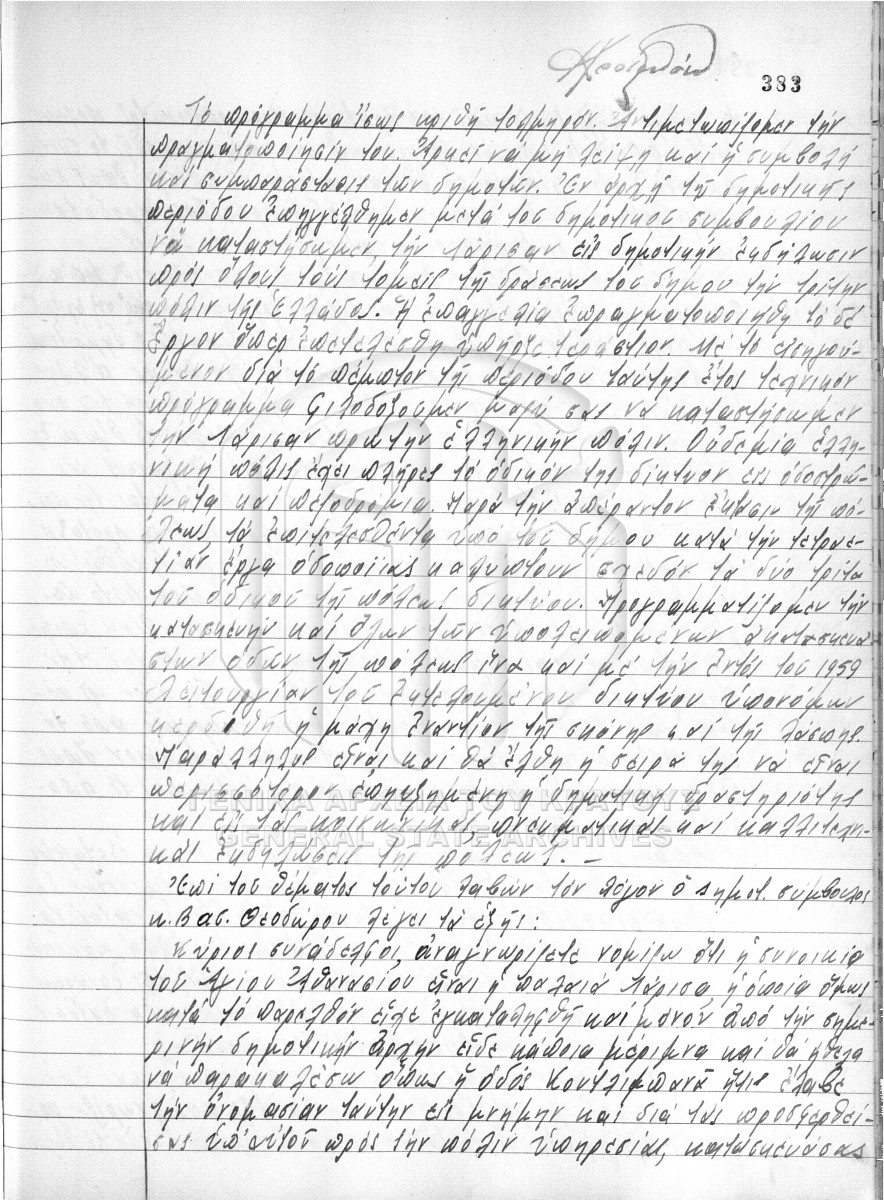 383
Τό πρόγραμμα ἴσως κριθῆ τολμηρόν. Ἀντιμετωπίζομεν τήν
πραγματοποίησίν του. Ἀρκεῖ νά μή λείψη καί ἡ συμβολή
καί συμπαράστασις τῶν δημοτῶν. Ἐν ἀρχῆ τῆς δημοτικῆς
περιόδου ἐπηγγέλθημεν μετά τοῦ δημοτικοῦ συμβουλίου
νά καταστήσωμεν τήν Λάρισαν εἰς δημοτικήν ἐκδήλωσιν
πρός ὅλους τούς τομεῖς τῆς δράσεως τοῦ δήμου τήν τρίτην
πόλιν τῆς Ἑλλάδος. Ἡ ἐπαγγελία ἐπραγματοποιήθη τό δέ
ἔργον ὅπερ ἐπετελέσθη ὑπῆρξε τεράστιον. Μέ τό εἰσηγού-
μενον διά τό πέμπτον τῆς περιόδου ταύτης ἔτος τεχνικόν
πρόγραμμα φιλοδοξοῦμεν μαζύ σας νά καταστήσωμεν
τήν Λάρισαν πρώτην ἑλληνικήν πόλιν. Οὐδεμία ἑλλη-
νική πόλις ἔχει πλῆρες τό ὁδικόν της δίκτυον εἰς ὁδοστρώ-
ματα καί πεζοδρόμια. Παρά τήν ἀπέραντον ἔκτασιν τῆς πό-
λεως τά ἐπιτελεσθέντα ὑπό τοῦ δήμου κατά τήν τετραε-
τίαν ἔργα ὁδοποιΐας καλύπτουν σχεδόν τά δύο τρίτα
τοῦ ὁδικοῦ τῆς πόλεως δικτύου. Προγραμματίζομεν τήν
κατασκευήν καί ὅλων τῶν ὑπολειπομένων ἀκατασκευά-
στων ὁδῶν τῆς πόλεως ἵνα καί μέ τήν ἐντός τοῦ 1959
λειτουργίαν τοῦ ἐκτελουμένου δικτύου ὑπονόμων
κερδηθῆ ἡ μάχη ἐναντίον τῆς σκόνης καί τῆς λάσπης.
Παράλληλος εἶναι καί θά ἔλθη ἡ σειρά της νά εἶναι
περισσότερον ἐπηυξημένη ἡ δημοτική δραστηριότης
καί εἰς τάς κοινωνικάς, πνευματικάς καί καλλιτεχνι-
κάς ἐκδηλώσεις τῆς πόλεως. —
Ἐπί τοῦ θέματος τούτου λαβών τόν λόγον ὁ δημοτ. σύμβουλος
κ. Βασ. Θεοδώρου λέγει τά ἑξῆς:
Κύριοι συνάδελφοι, ἀναγνωρίζετε νομίζω ὅτι ἡ συνοικία
τοῦ Ἁγίου Ἀθανασίου εἶναι ἡ παλαιά Λάρισα ἡ ὁποία ὅμως
κατά τό παρελθόν εἶχε ἐγκαταληφθῆ καί μόνον ἀπό τήν σημε-
ρινήν δημοτικήν ἀρχήν εἶδε κάποια μέριμνα καί θά ἤθελα
νά παρακαλέσω ὅπως ἡ ὁδός Κουτλιμπανᾶ ἥτις ἔλαβε
τήν ὀνομασίαν ταύτην εἰς μνήμην καί διά τάς προσφερθεί-
σας ὑπ' αὐτοῦ πρός τήν πόλιν ὑπηρεσίας, κατασκευάσας
ΓΕΝΙΚΑ ΑΡΧΕΙΑ ΤΟΥ ΚΡΑΤΟΥΣ
GENERAL STATE ARCHIVES